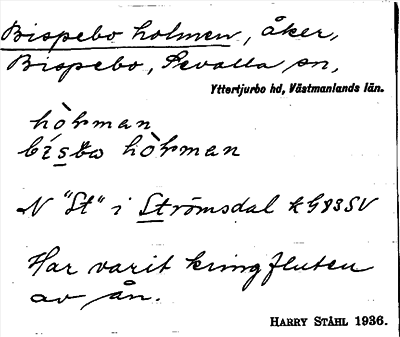 Bispebo holmen, åker,
Bispebo, Sevalla sn,
Yttertjurbo hd, Västmanlands län.
hòrman
hòrman
N "St" i Strömsdal kG83SV
Har varit kringfluten
av ån.
HARRY STÅHL 1936.